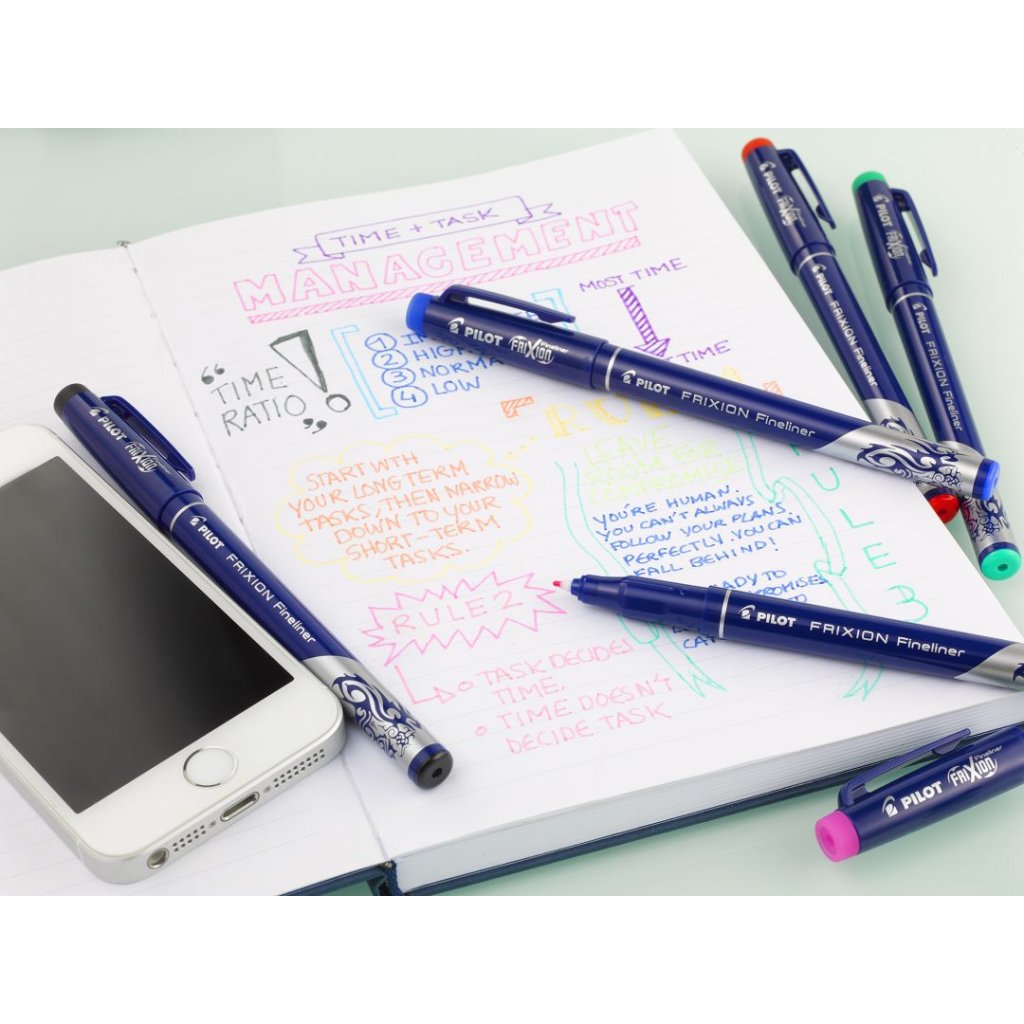 TIME + TASK
MANAGEMENT
MOST TIME
TIME
"TIME
RATIO"!
1
2 HIGH
3 NORMA
4 LOW
START WTH
YOUR LONGTERM
TASKS, THEN NARROW
DOWN TO YOUR
SHORT-TERM
TASKS.
LEAVE
ROOM FOR
YOU'RE HUMAN.
YOU CAN'T ALWAYS
FOLLOW YOUR PLANS.
PERFECTLY. YOU CAN
FALL BEHIND!
RULE 2
TASK DECIDES
TIME.
TIME DOESN'T
DECIDE TASK
RULE 3
PILOT FRIXION Fineliner
PILOT FRIXION Fineliner
PILOT FRIXION
PILOT FRIXION Fineliner
PILOT FRIXION
PILOT FRIXION Fineliner
PILOT FRIXION
PILOT FRIXION Fineliner
PILOT FRIXION Fineliner
PILOT FRIXION Fineliner